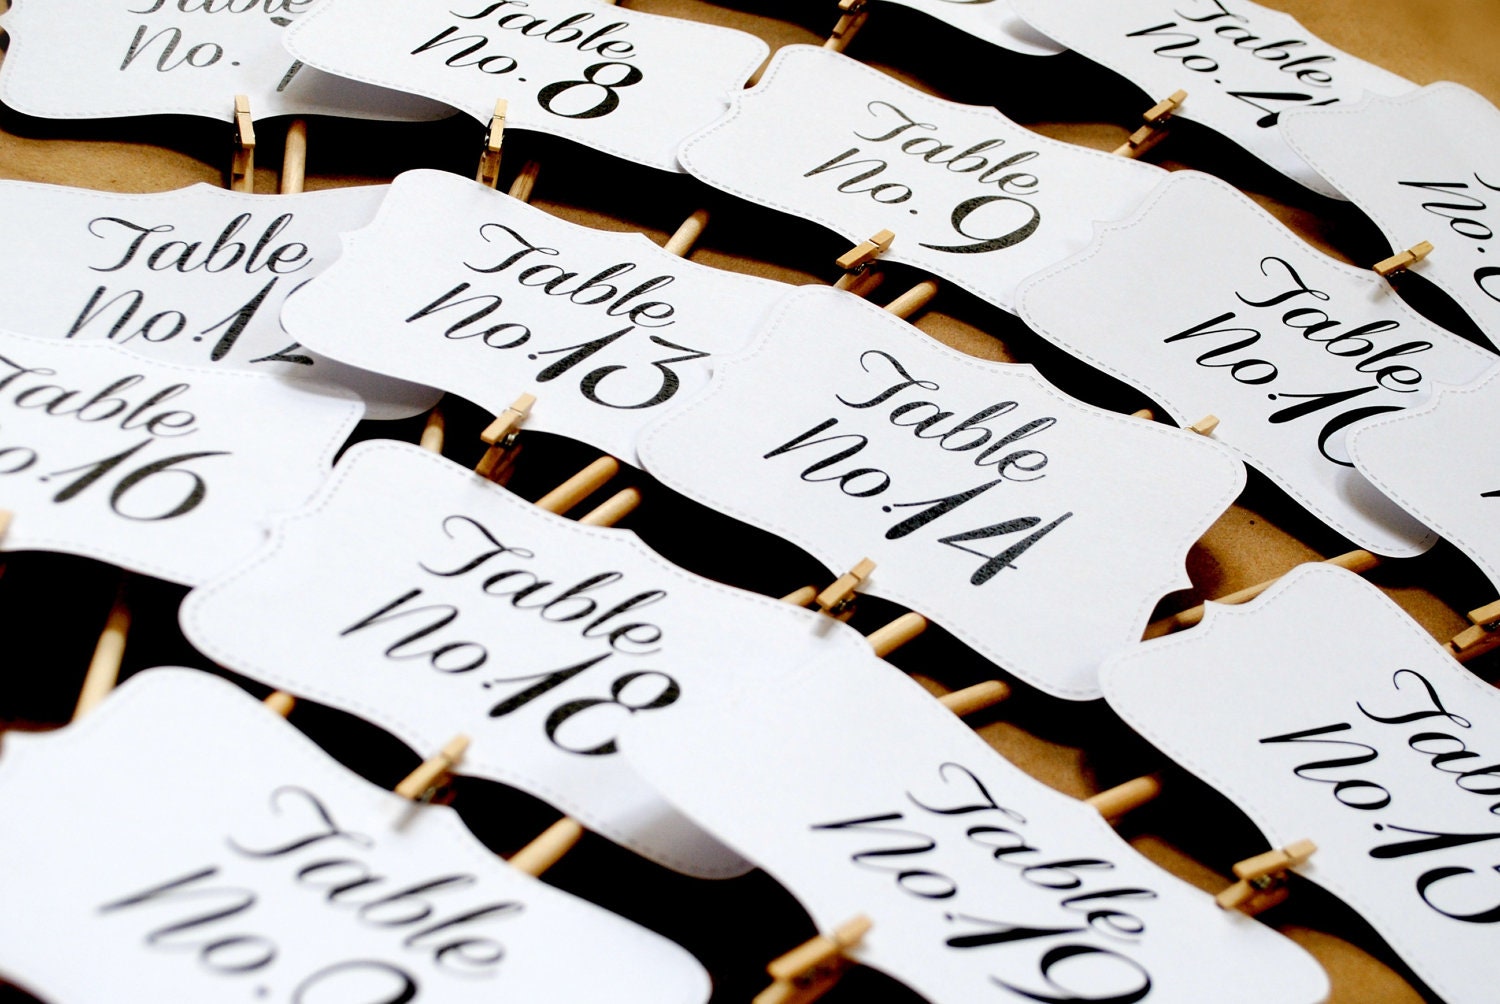 Table
No. 7
Table
No. 8
Table
No. 4
Table
No. 9
Table
No.
Table
No. 12
Table
No. 13
Table
No. 10
Table
No. 14
Table
No. 16
Table
No. 18
Table
No. 15
Table
No. 19
Table
No.